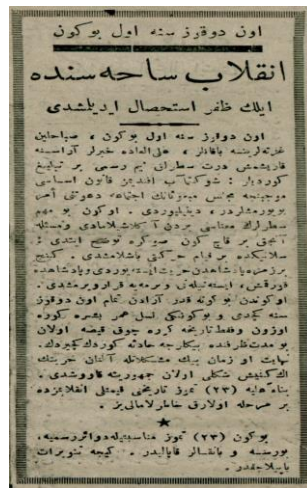 اون دوقوز سنه اول بو كون
انقلاب ساحه سنده
ايلك ظفر استحصال ايديلمشدى
اون دوقوز سنه اول بوكون ، صباحلين
غزته لرينه باقانلر ، على العاده خبرلر آراسنه
قاريشمش درت سطرلق نيم رسمى بر تبليغ
كورديلر : شوكتمآب افنديمز قانون اساسى
موجبنجه مجلس مبعوثانك اجتماعه دعوتنى امر
بويورمشلردر ، دينيليوردى . اوكون بو مهم
سطرلرك معناسى بردن آكلاشيلامادى ومسئله
آنجق بر قاچ كون صوكره توضح ايتدى :
سلانيكده بر قيام حركتى باشلامشدى . كنج
بر زمره پادشاهدن حريت ايسته يوردى وپادشاهده
قورقمش ، ايسته نيلنى ويرمه يه قرار ويرمشدى .
اوكوندن بوكونه قدر آرادن تمام اون دوقوز
سنه كچدى و بوكونكى نسل عمر بشره كوره
اوزون وفقط تاريخه كوره چوق قيصه اولان
بو مدت ظرفنده بيكلرجه حادثه كوردك كچيردك .
نهايت او زمان بيك مشكلاتله آلنان حريتك
اك كنيش شكلى اولان جمهوريته قاووشدق .
بناءً عليه (٢٣) تموز تاريخنى قيمتلى انقلابمزده
بر مرحله اولارق خاطرلامالى يز .
★
بوكون (٢٣) تموز مناسبتيله دوائر رسميه ،
بورسه و بانقه لر قاپاليدر . كيجه تنويرات
ياپيلاجقدر .